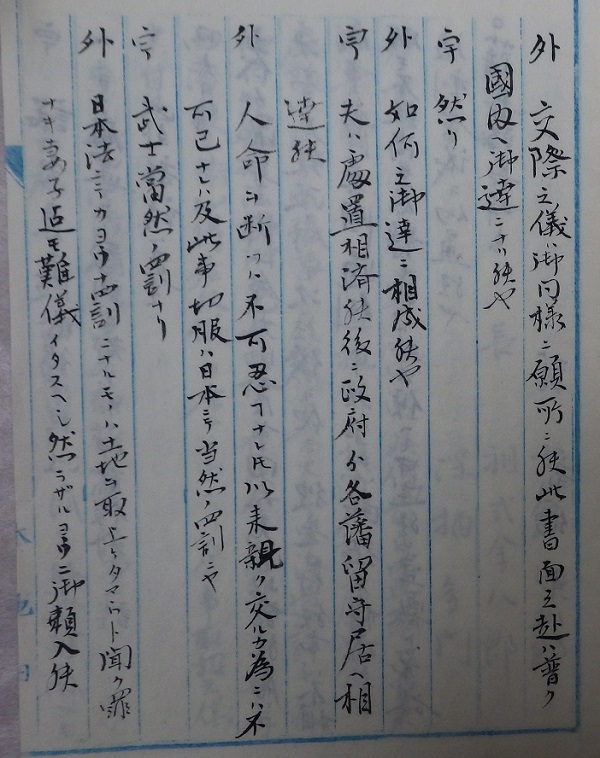 外 交際之儀ハ御同様ニ願所ニ候此書面之赴ハ普ク
國内ヘ御達ニナリ候や
宇 然り
外 如何之御達ニ相成候や
宇 夫ハ處置相済候後ニ政府ゟ各藩留守居ヘ相
達候
外 人命ヲ断ツハ不可忍ヿナレ𪜈以来親ク交ルカ為ニハ不
可已ナレハ及此事切服ハ日本ニテ当然ノ四割ニや
宇 武士當然ノ四割ナリ
外 日本法ニテカヨウナ四割ニナルモノハ土地ヲ取上ラレタマフト聞ク罪
ナキ妻子迠モ難儀イタスヘシ然ラザルヨウニ御頼入候